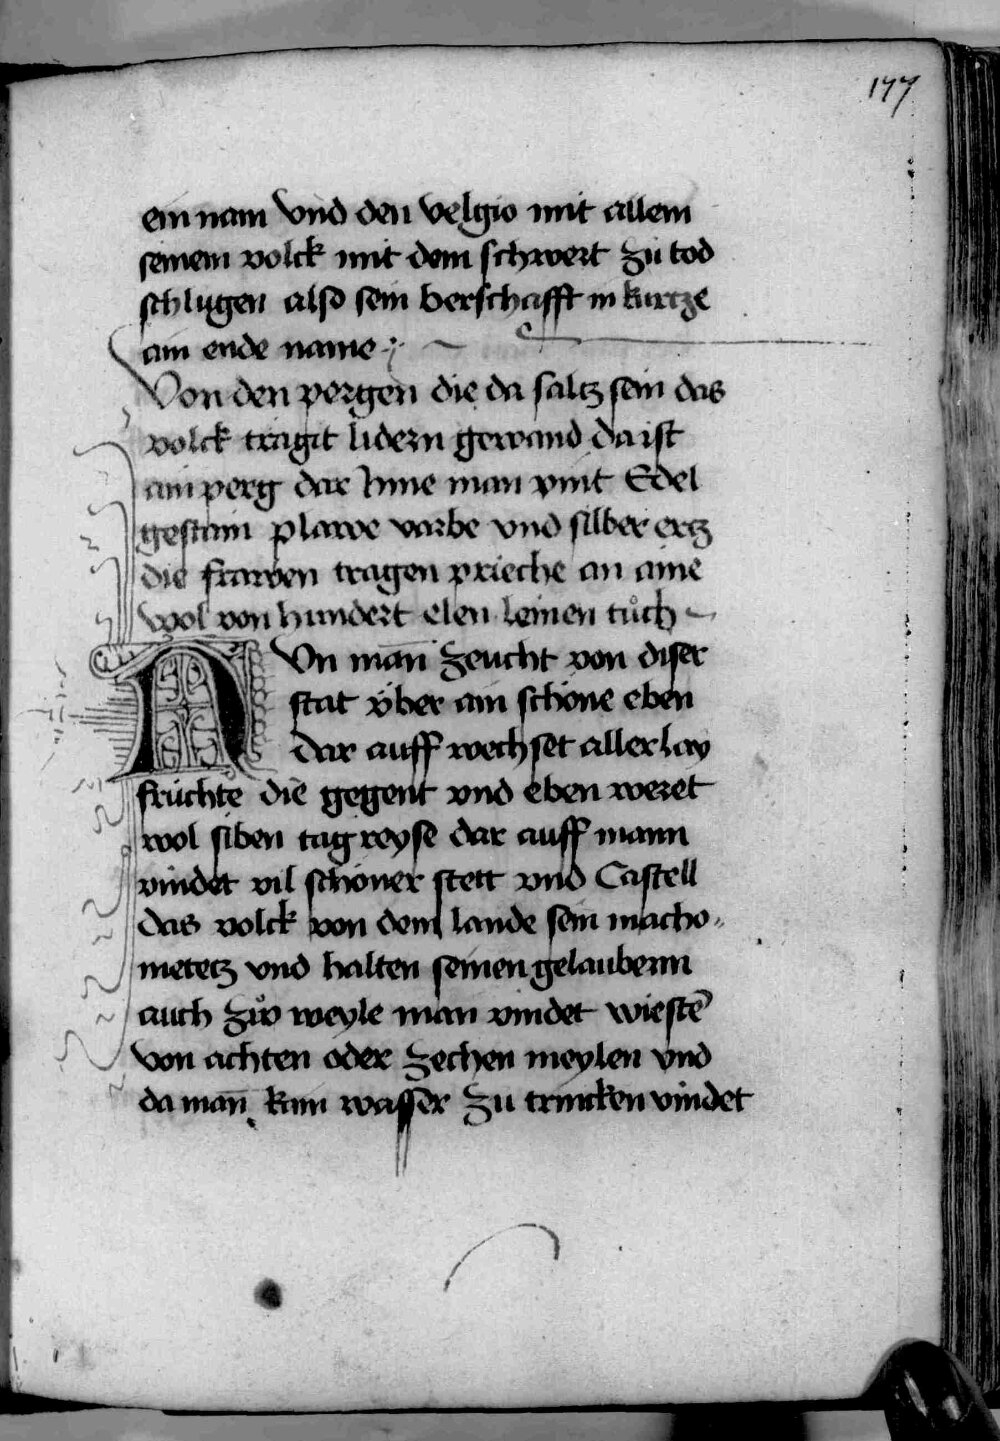 177
ein nam Vnd den velgio mit allem
seinem volck mit dem schwert zü tod
schlugen also sein herschafft in kurtze
ain ende name
Von den pergen die da saltz sein das
volck tragit lidern gewand da ist
ain perg dar Inne man vint Edel
gestain plawe varbe vnd silber ertz
die frawen tragen prieche an aine
wol von hundert elen leinen tůch
NVn man̄ zeucht von diser
stat v̈ber ain schöne eben
dar auff wechset aller lay
früchte die gegent vnd eben weret
wol siben tag reyse dar auff mann
vindet vil schöner stett vnd Castell
das volck von dem lande sein macho„
metetz vnd halten seinen gelaubenn
auch zůo weyle man vindet wiestē
von achten oder zechen meylen vnd
da man̄ kain wasser zu trincken vindet